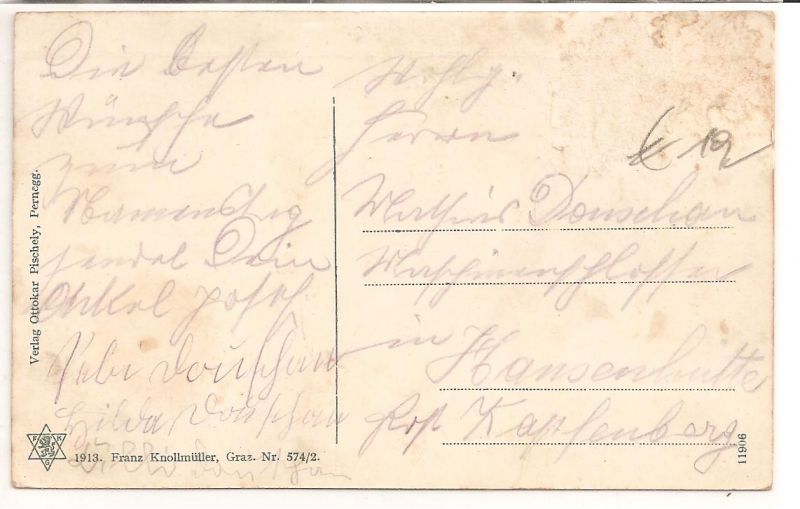 Die besten
Wünsche
zum
Namenstag
sendet Dein
Onkel Josef
Hilda Douschan
Willi Douschan
Wohlg.
Herrn
Mathias Douschan
Maschinenschlosser
in
Hansenhütte
Post Kapfenberg
K 12
Verlag Ottokar Pischely, Pernegg.
F K
G
1913. Franz Knollmüller, Graz. Nr. 574/2.
11906